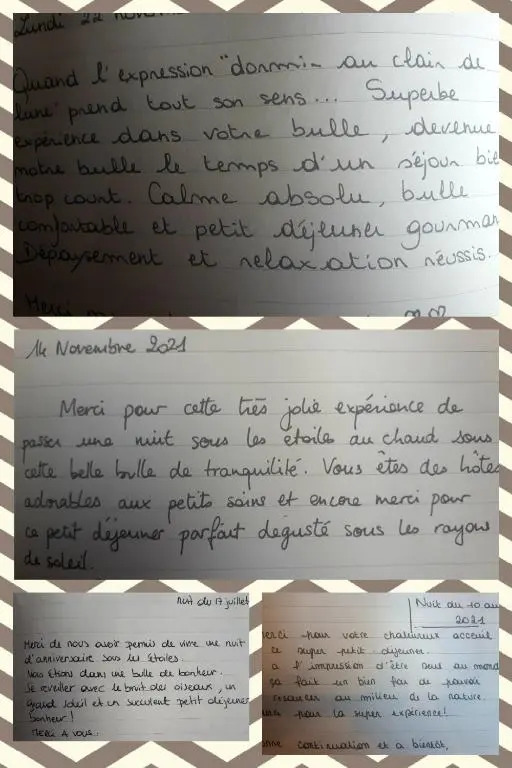 Lundi 22 novem
Quand l'expression "dormir au clair de
lune" prend tout son sens... Superbe
expérience dans votre bulle, devenue
notre bulle le temps d'un séjour bie
trop court. Calme absolu, bulle
confortable et petit déjeuner gourman
Dépaysement et relaxation réussis.
Merci
14 Novembre 2021
Merci pour cette très jolie expérience de
passer une nuit sous les étoiles au chaud sous
cette belle bulle de tranquilité. Vous êtes des hôtes
adorables aux petits soins et encore merci pour
ce petit déjeuner parfait degusté sous les rayons
de soleil.
Nuit du 17 juillet
Merci de nous avoir permis de vivre une nuit
d'anniversaire sous les étoiles.
Nous étions dans une bulle de bonheur.
Se reveiller avec le bruit des oiseaux, un
grand soleil et un succulent petit déjeuner
bonheur!
Merci à vous.
Nuit du 10 aou
2021
erci pour votre chaleureux acceuil
ce super petit déjeuner.
a l'impression d'être seul au mond
ça fait un bien fou de pouvoir
ressourcer au milieu de la nature.
pour la super expérience!
onne continuation et a bientôt,